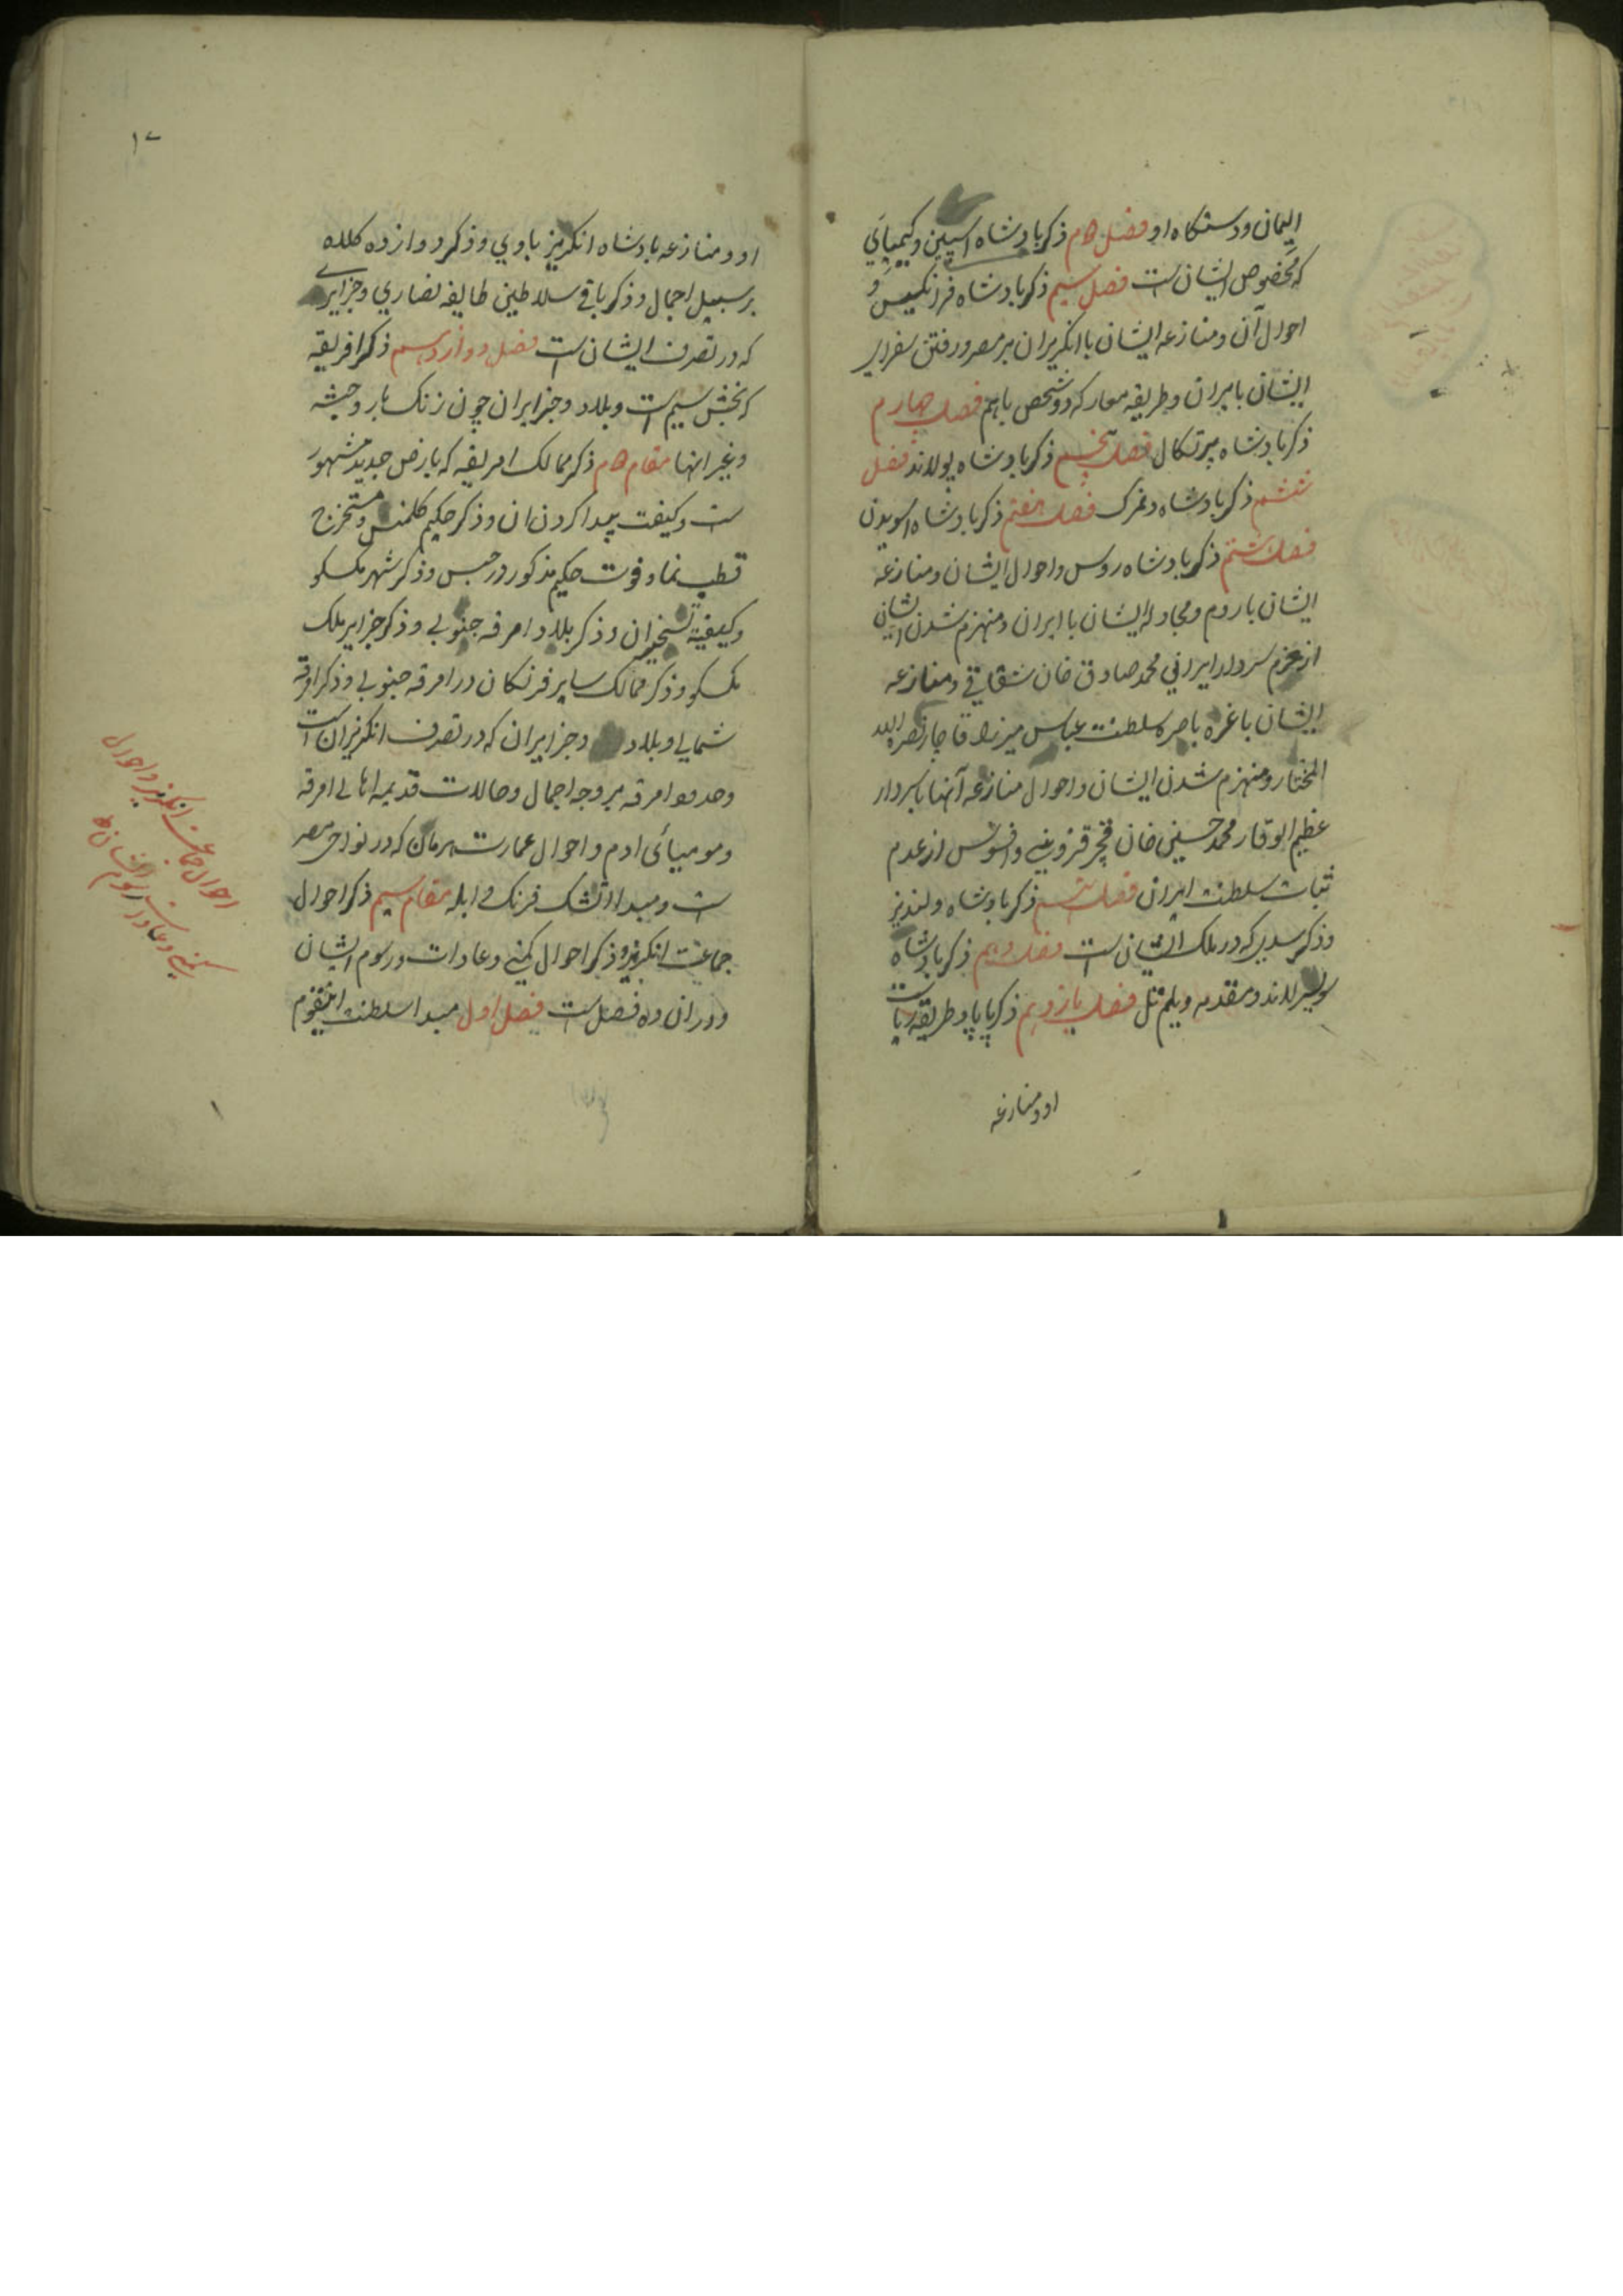 الیمان و دستکاه او فصل ۲م ذکر پادشاه اسپین و کیمیایی
که مخصوص ایشان است فصل سیم ذکر پادشاه فرانکسیس و
احوال آن و منازعه ایشان با انکریزان بر مصر و رفتن سفرای
ایشان بایران و طریقه معارکه دو شخص باهم فصل چهارم
ذکر پادشاه پرتکال فصل پنجم ذکر پادشاه پولاند فصل
ششم ذکر پادشاه دنمرک فصل هفتم ذکر پادشاه اسویدن
فصل هشتم ذکر پادشاه روس و احوال ایشان و منازعه
ایشان با روم و مجادله ایشان با ایران و منهزم شدن ایشان
از عزم سردار ایرانی محمد صادق خان شقاقی و منازعه
ایشان با غره باصره سلطنت عباس میرزا قاجار نصره الله
المختار و منهزم شدن ایشان و احوال منازعه آنها با سردار
عظیم الوقار محمد حسینی خان قجر قزوینی و افسوس از عدم
ثبات سلطنت ایران فصل نهم ذکر پادشاه ولندیز
و ذکر سدی که در ملک ایشان است فصل دهم ذکر پادشاه
سویسرلاند و مقدمه ویلم تل فصل یازدهم ذکر پاپا و طریقه ریاست
او و منازعه
۱۷
او و منازعه پادشاه انکریز باوی و ذکر دوازده کلده
بر سبیل اجمال و ذکر باقی سلاطین طایفه نصاری و جزایری
که در تصرف ایشان است فصل دوازدهم ذکر افریقه
که بخش سیم است و بلاد و جزایر آن چون زنک بار و حبشه
و غیر انها مقام ۲م ذکر ممالک امریقه که بارض جدید مشهور
ست و کیفت پیدا کردن ان و ذکر حکیم کلمنس و مستخرج
قطب نما و فوت حکیم مذکور در حبس و ذکر شهر مکسکو
و کیفیة تسخیر ان و ذکر بلاد امرقه جنوبی و ذکر جزایر ملک
مکسکو و ذکر ممالک سایر فرنکان در امرقه جنوبی و ذکر امرقه
شمالی و بلاد و جزایر ان که در تصرف انکریزان است
و حدود امرقه بر وجه اجمال و حالات قدیمه اهالی امرقه
و مومیائی ادم و احوال عمارت هرمان که در نواحی مصر
ست و مبدا اتشک فرنک و ابله مقام سیم ذکر احوال
جماعت انکریز و ذکر احوال کمپنی و عادات و رسوم ایشان
و در ان ده فصل است فصل اول مبدا سلطنت اینقوم
احوال جماعت انکریز و احوال
کمپنی و عادات و رسوم ایشان